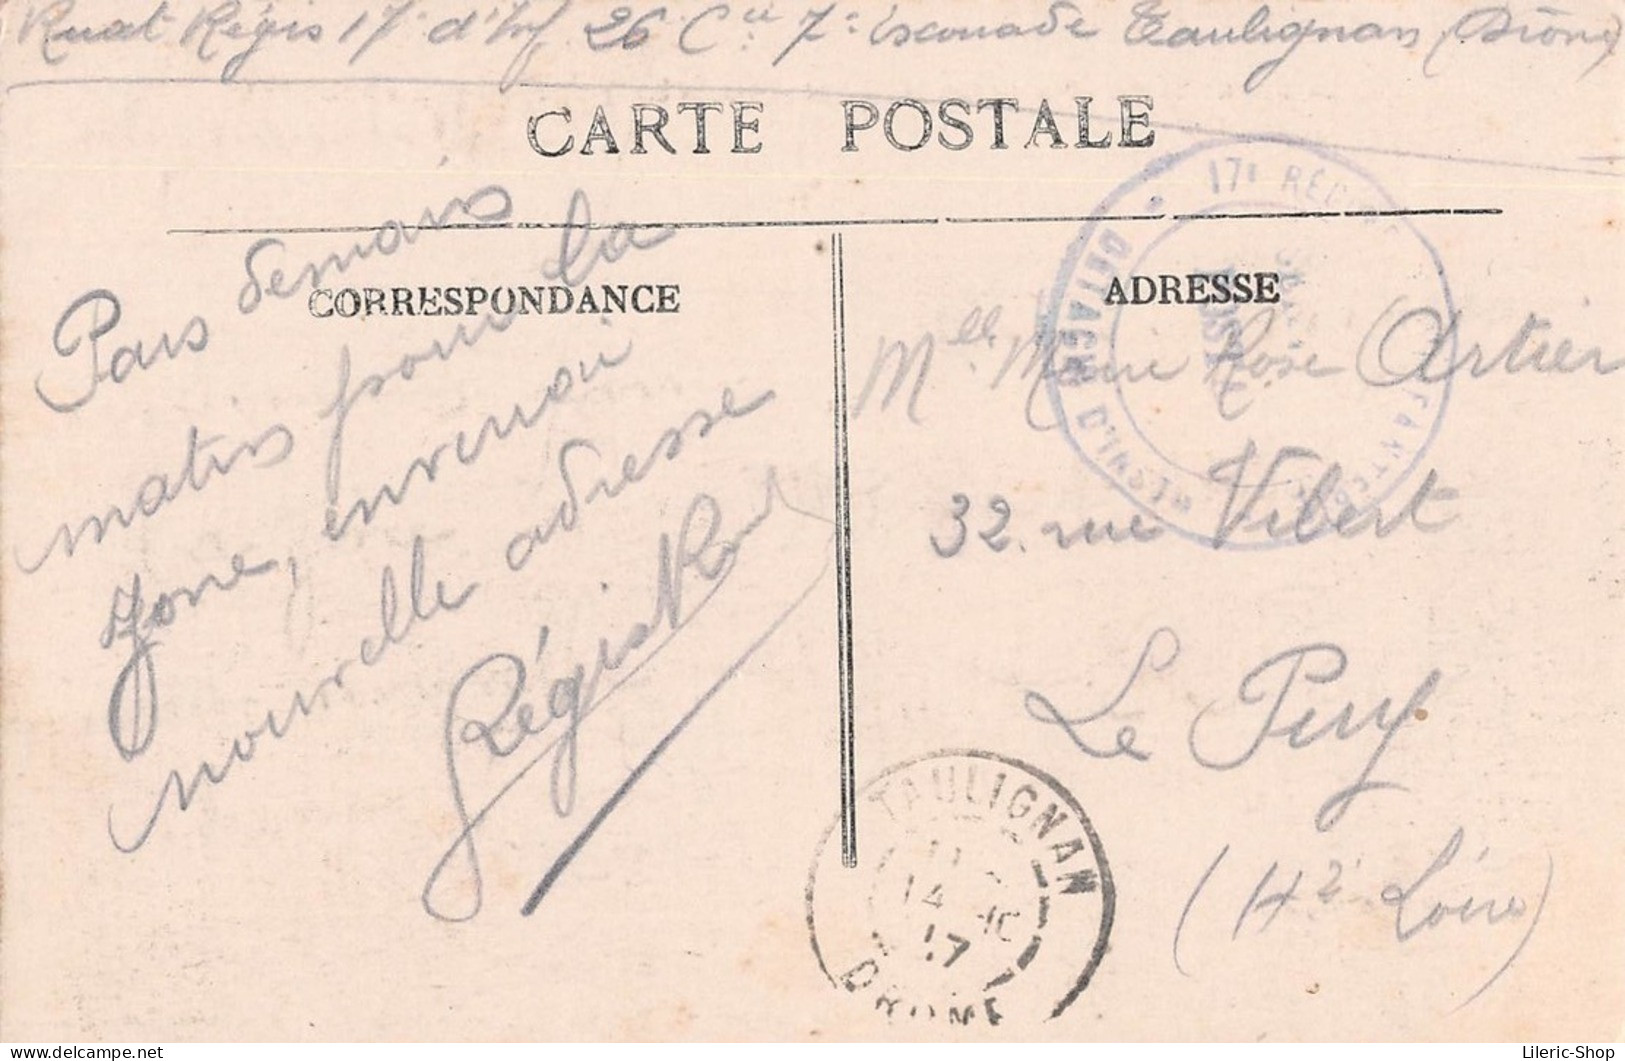 Régis 17e d'Inf. 26 Cie 7e escouade Taulignan (Drôme)
CARTE POSTALE
CORRESPONDANCE
ADRESSE
Pars demain
matin pour la
zone, enverrai
nouvelle adresse
Régis
Mlle Marie Rose Artier
32. rue Vibert
Le Puy
(Hte Loire)
17e
DETACHt D'
TAULIGNAN
14
17
DROME
Lileric-Shop